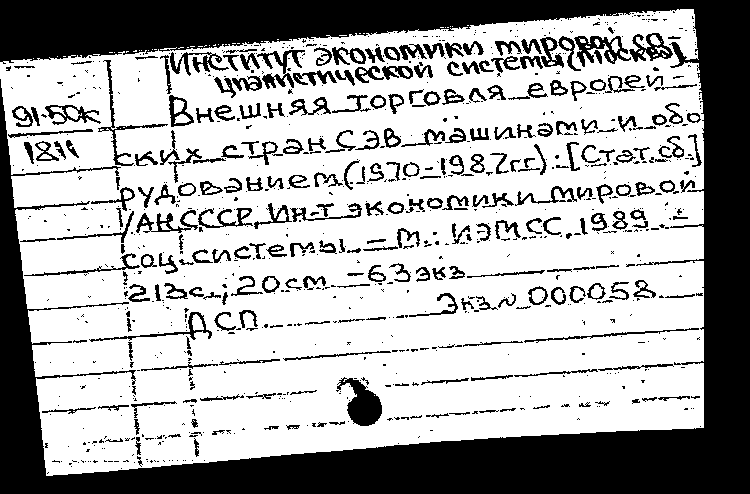 Институт экономики мировой со-
циалистической системы (Москва)
91-50к
Внешняя торговля европей-
1811
ских стран СЭВ машинами и обо
рудованием (1970-1987гг) : [Стат. сб.]
/АН СССР, Ин-т экономики мировой
соц. системы. – М.: ИЭМСС, 1989. –
213с.; 20 см – 63 экз
ДСП Экз № 000058